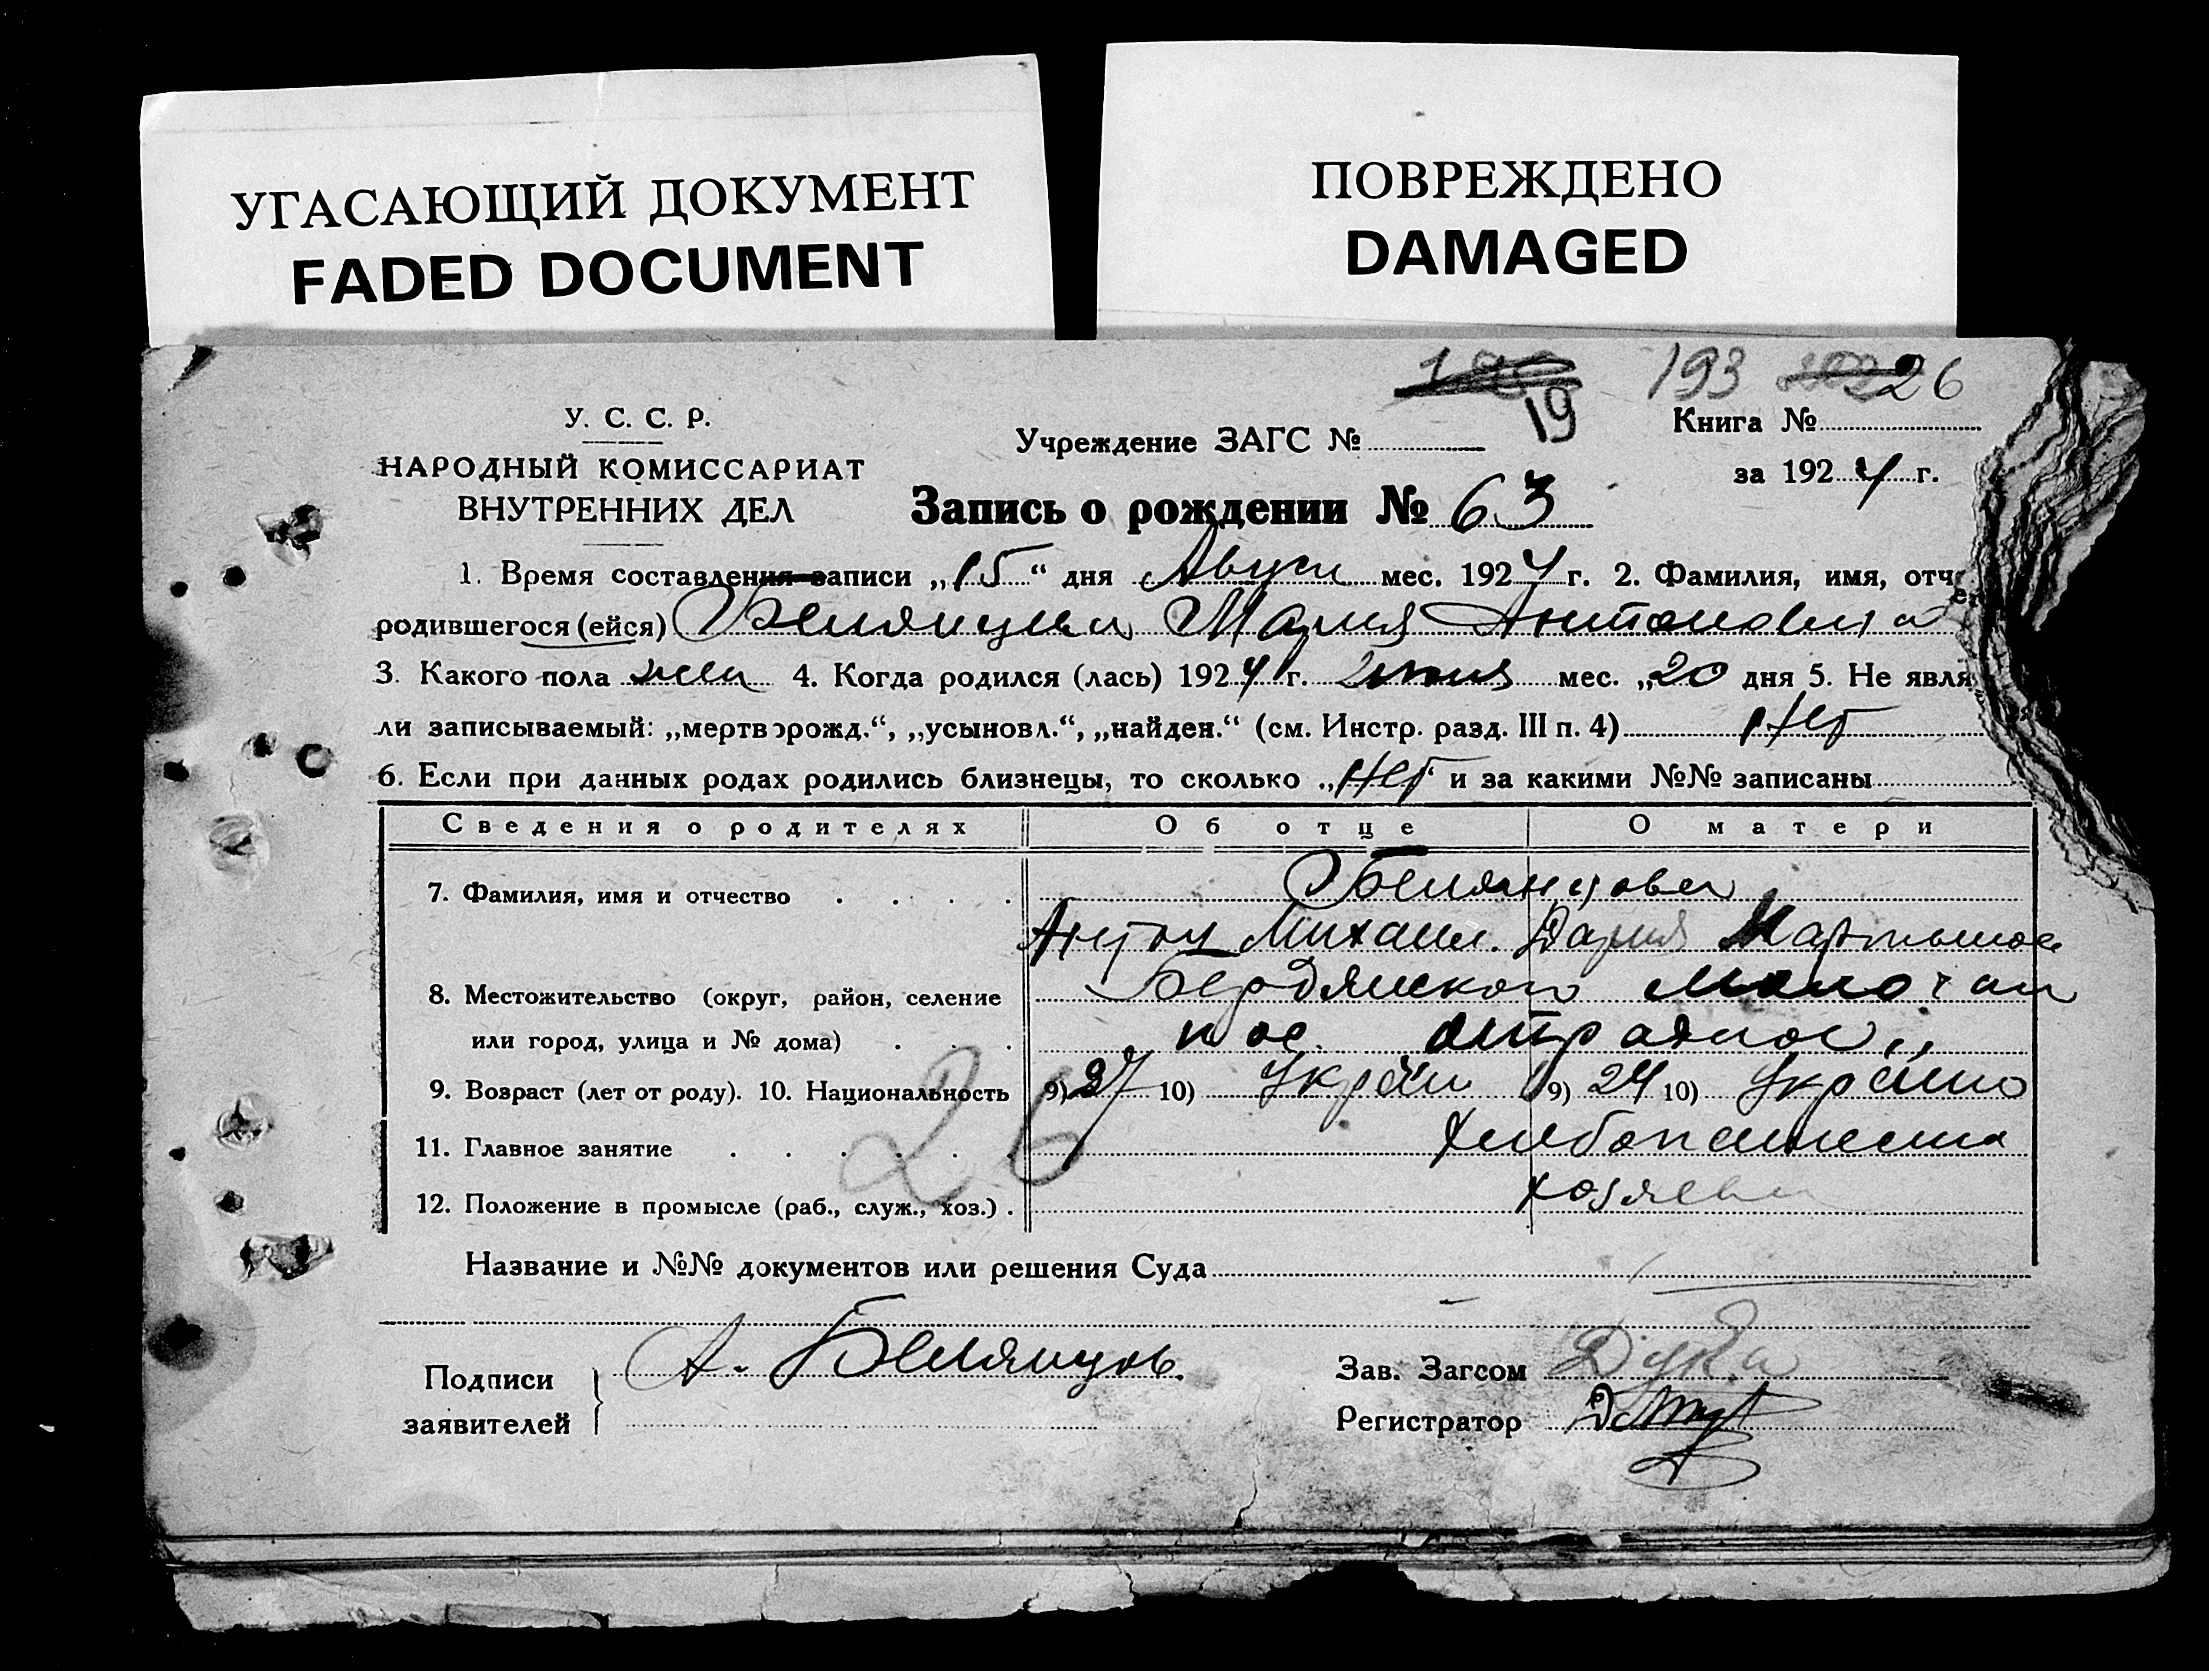 УГАСАЮЩИЙ ДОКУМЕНТ
FADED DOCUMENT
ПОВРЕЖДЕНО
DAMAGED
193 26
19
У. С. С. Р.
НАРОДНЫЙ КОМИССАРИАТ
ВНУТРЕННИХ ДЕЛ
Учреждение ЗАГС №
Книга №
за 1924 г.
Запись о рождении № 63
1. Время составления записи „15“ дня Авгус мес. 1924 г. 2. Фамилия, имя, отче
родившегося (ейся) Мария Антоновна
3. Какого пола жен 4. Когда родился (лась) 1924 г. мес. „20 дня 5. Не явля
ли записываемый: „мертворожд.“, „усыновл.“, „найден.“ (см. Инстр. разд. III п. 4) Нет
6. Если при данных родах родились близнецы, то сколько „Нет“ и за какими №№ записаны
Сведения о родителях Об отце О матери
7. Фамилия, имя и отчество Белянцова
Антон Михаил. Дария Мартынов
8. Местожительство (округ, район, селение Бердянской Молочан
или город, улица и № дома) пос. отрадное
9. Возраст (лет от роду). 10. Национальность 9) 27 10) Украин 9) 24 10) Украин
26
11. Главное занятие хлебопашество
12. Положение в промысле (раб., служ., хоз.) хозяева
Название и №№ документов или решения Суда
Подписи
заявителей
А. Белянцов.
Зав. Загсом
Регистратор